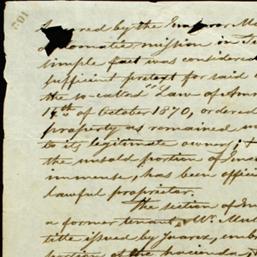 ored by the Emperor Ma
diplomatic mission in Te
simple fact was considered
sufficient pretext for said
the so-called "Law of Amn
14th of October 1870, ordered
property as remained u
to its legitimate owner; t
the unsold portion of
immense, has been offic
lawful proprietor.
The section of
a former tenant Mr. Mul
title issued by Juarez, emb
portion of the hacienda,